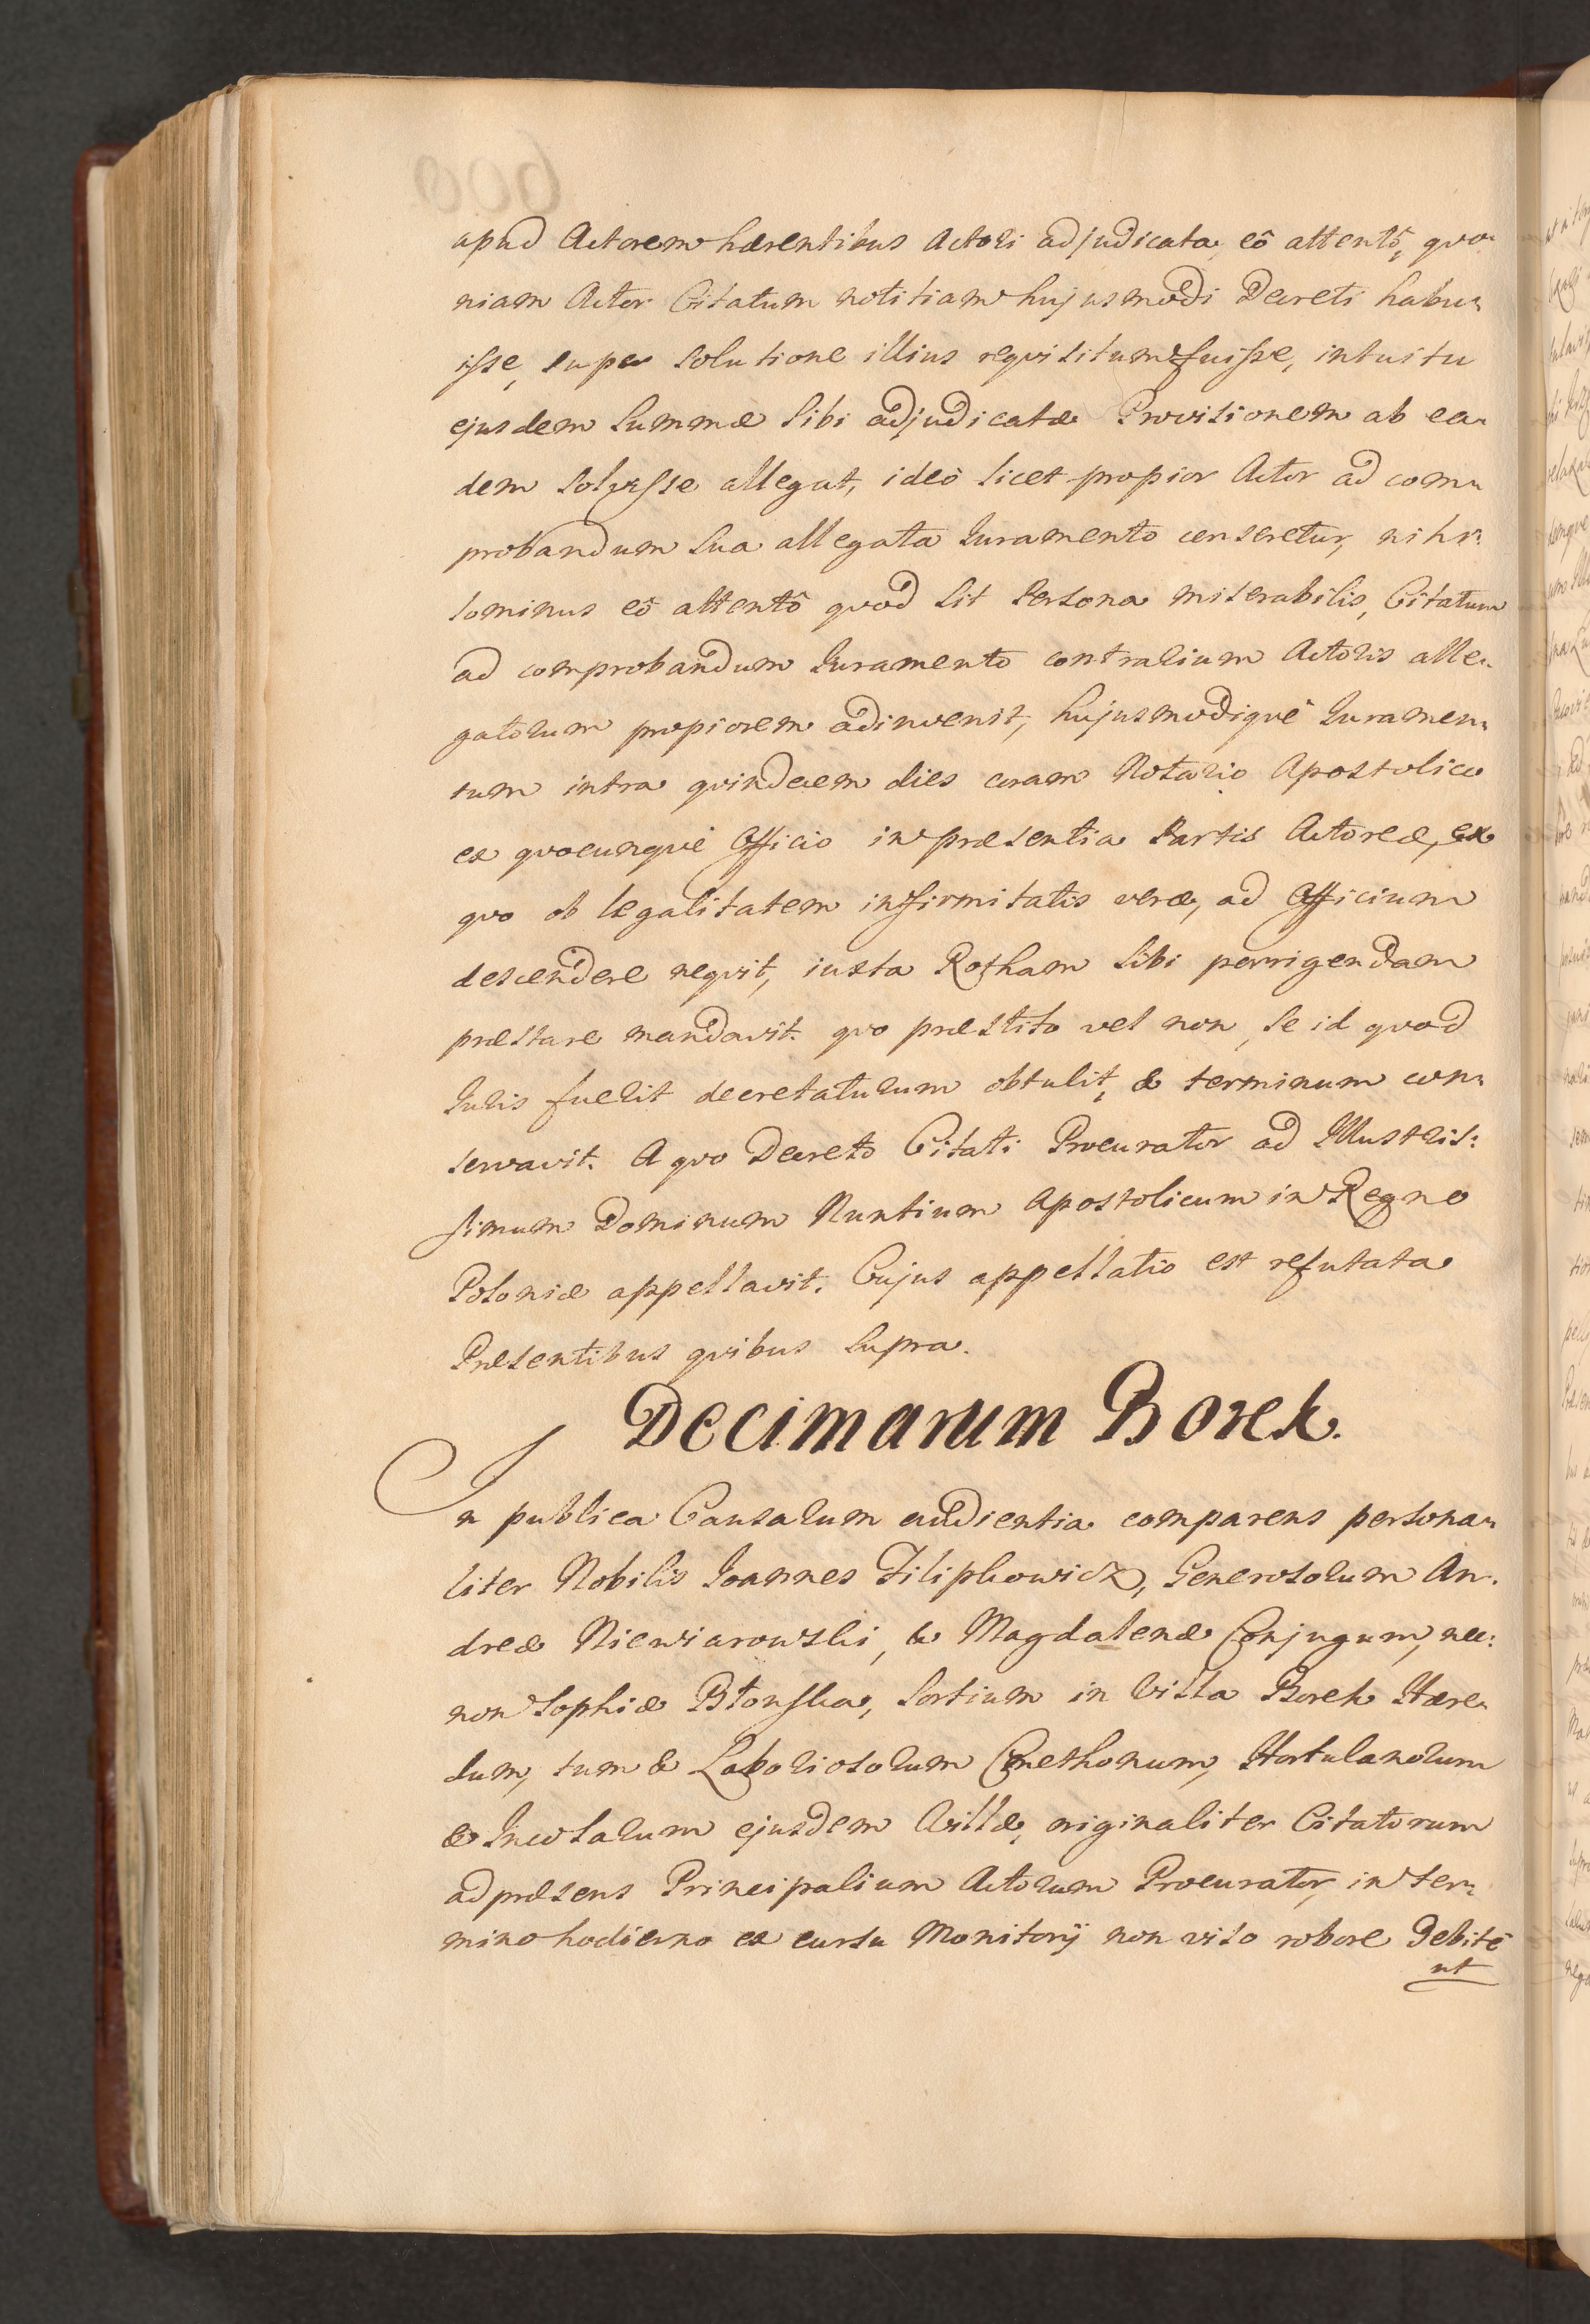 apud Actorem hærentibus Actori adjudicata, eô attentô, quo-
niam Actor Citatum notitiam hujusmodi Decreti habu-
isse, super solutione illius requisitum fuisse, intuitu
ejusdem Summæ sibi adjudicatæ Provisionem ab ea-
dem solvisse allegat, ideò licet propior Actor ad com-
probandum sua allegata Juramento censeretur, nihi-
lominus eô attentô quod sit Persona miserabilis, Citatum
ad comprobandum Juramento contrarium Actoris alle-
gatorum propiorem adinvenit, hujusmodiquè Juramen-
tum intra quindecem dies coram Notario Apostolico
ex quocunquè Officio in præsentia Partis Actoreæ, ex
quo ob legalitatem infirmitatis veræ, ad Officium
descendere nequit, iuxta Rotham sibi porrigendam
præstare mandavit. quo præstito vel non, se id quod
Juris fuerit decretaturum obtulit, & terminum con-
servavit. A quo Decreto Citati Procurator ad Illustris-
simum Dominum Nuntium Apostolicum in Regno
Poloniæ appellavit. Cujus appellatio est refutata
Præsentibus quibus supra.
Decimarum Borek.
In publica Causarum audientia comparens persona-
liter Nobilis Joannes Filipkowicz, Generosorum An-
dreæ Niewiarowski, & Magdalenæ Conjugum, nec-
non Sophiæ Błonska, Sortium in Villa Borek Hære-
dum, tum & Laboriosorum Cmethonum, Hortulanorum
& Incolarum ejusdem Villæ, originaliter Citatorum
ad præsens Principalium Actorum Procurator, in ter-
mino hodierno ex cursu Monitorij non viso robore Debitè
ut